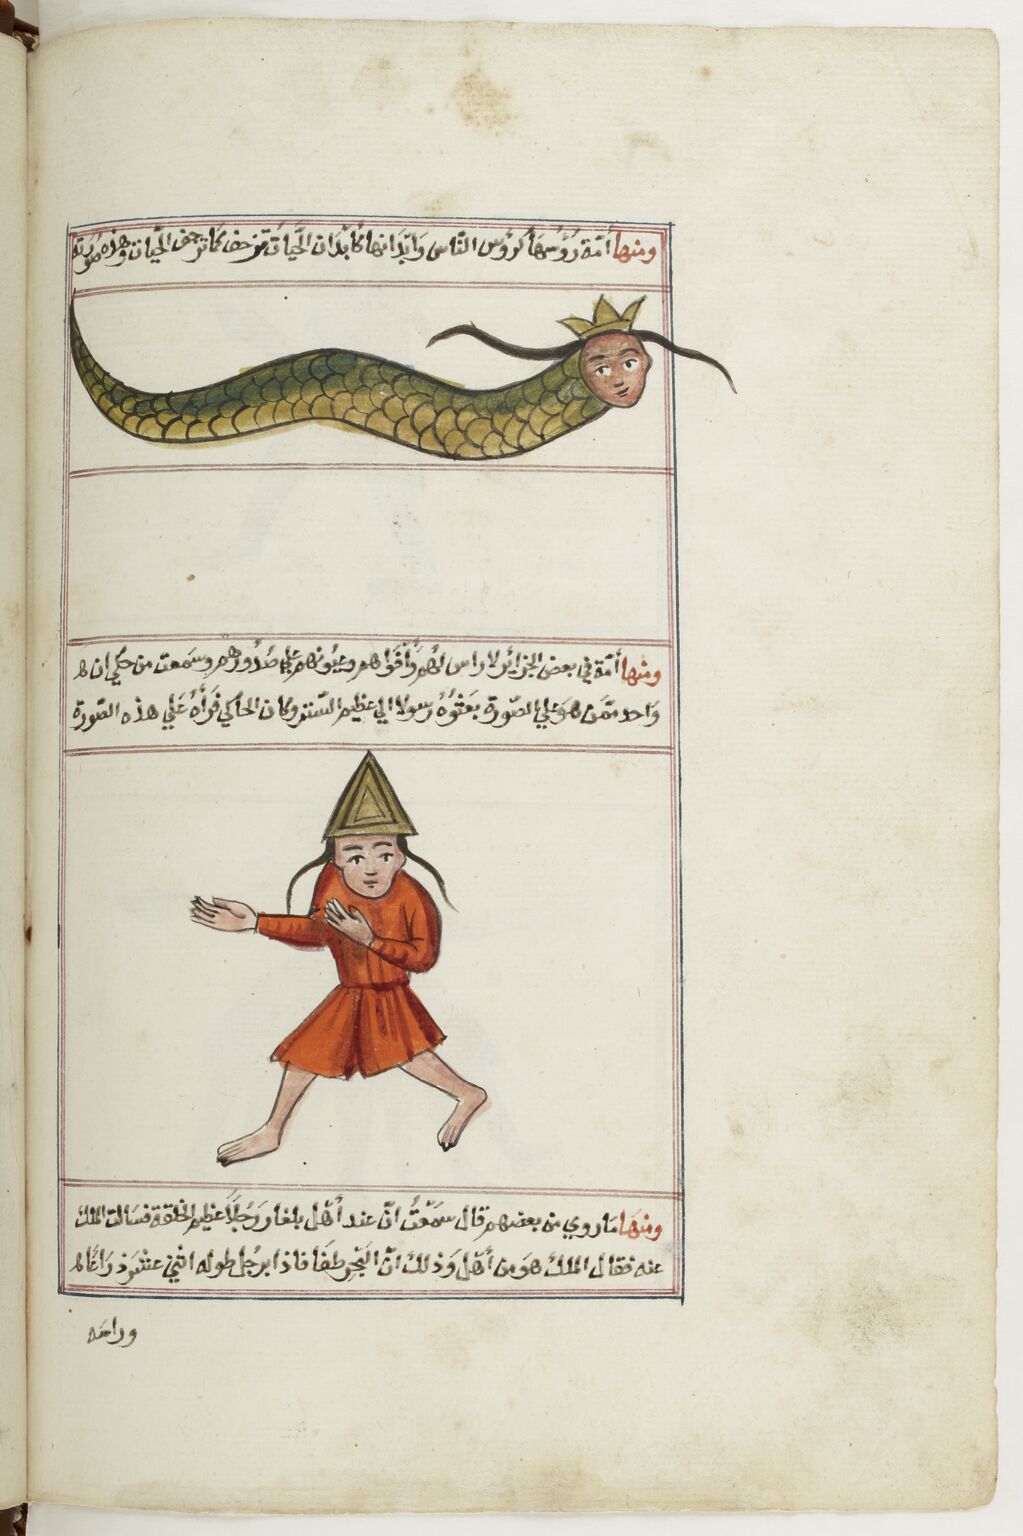 ومنها أمّة رُؤُسها كرؤس النّاس وَابْدَانها كَابْدَان الحيّات تزحف كما تزحف الحيات وهذه صورته
ومنها أمّة في بعض الجزائر لا راس لهم وَأَفْوَاههم وعيونهم على صُدُورهم وسمعت من حكي ان لم
وَاحد ممّن هو على الصّورة بَعَثوهُ رسولا الي عظيم التتر وكان الحاكي فرآهُ عَلي هذه الصّورة
ومنهَا مَا روي من بعضهم قال سَمَعْتُ انّ عند أَهْل بلغار رَجُلاً عظيم الخلقة فسالت الملك
عنه فقال الملك هوَ من أَهْل وَذلك انّ البَحْر طفَا فاذا برجُل طوله اثني عشَر ذرَاعًا لم
وراسه